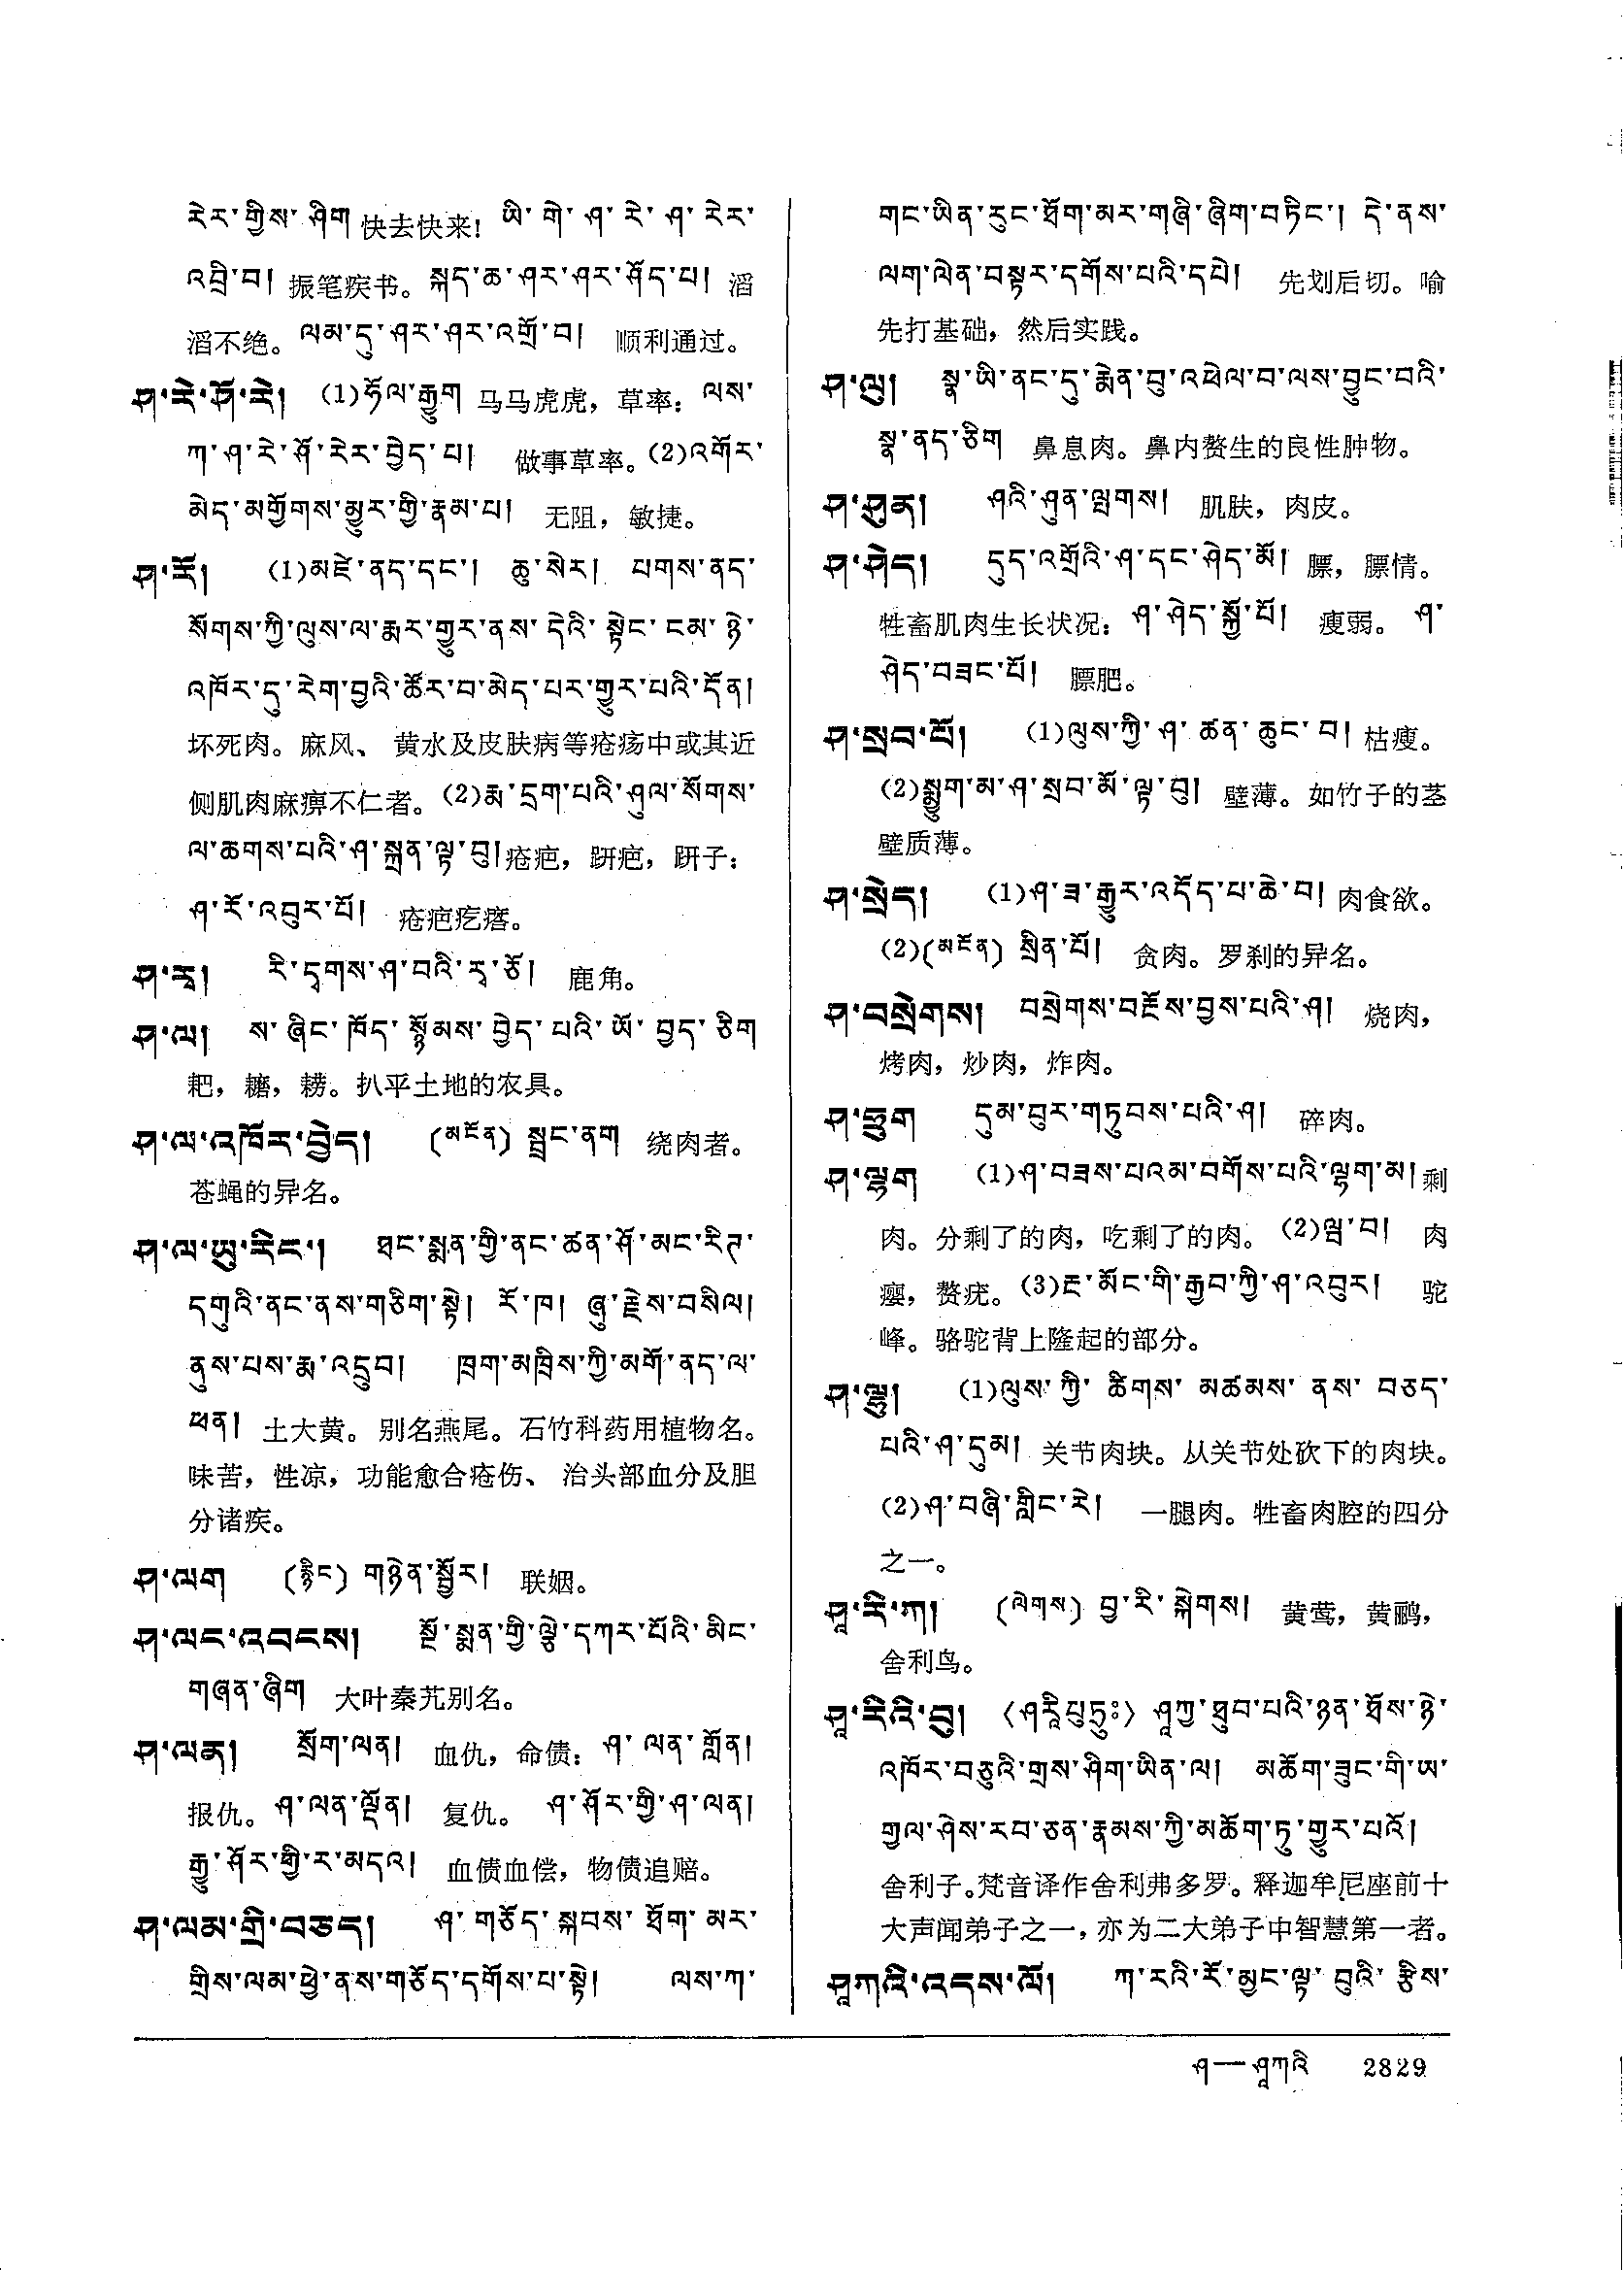 རེར་གྱིས་ཤིག 快去快来! ཡི་གེ་ཤ་རེ་ཤ་རེར་
འབྲི་བ། 振笔疾书。སྐད་ཆ་ཤར་ཤར་ཤོད་པ། 滔
滔不绝。ལམ་དུ་ཤར་ཤར་འགྲོ་བ། 顺利通过。
ཤ་རེ་ཤོ་རེ། (1)ཧོལ་རྒྱུག 马马虎虎，草率：ལས་
ཀ་ཤ་རེ་ཤོ་རེར་བྱེད་པ། 做事草率。(2)འགོར་
མེད་མགྱོགས་མྱུར་གྱི་རྣམ་པ། 无阻，敏捷。
ཤ་རོ། (1)མཛེ་ནད་དང་། ཆུ་སེར། པགས་ནད་
སོགས་ཀྱི་ལུས་ལ་རྨར་གྱུར་ནས་དེའི་སྟེང་ངམ་ཉེ་
འཁོར་དུ་རེག་བྱའི་ཚོར་བ་མེད་པར་གྱུར་པའི་དོན།
坏死肉。麻风、黄水及皮肤病等疮疡中或其近
侧肌肉麻痹不仁者。(2)རྨ་དྲག་པའི་ཤུལ་སོགས་
ལ་ཆགས་པའི་ཤ་སྐྲན་ལྟ་བུ། 疮疤，趼疤，趼子：
ཤ་རོ་འབུར་པོ། 疮疤疙瘩。
ཤ་རྭ། རི་དྭགས་ཤ་བའི་རྭ་ཅོ། 鹿角。
ཤ་ལ། ས་ཞིང་ཁོད་སྙོམས་བྱེད་པའི་ཡོ་བྱད་ཅིག
耙，耱，耢。扒平土地的农具。
ཤ་ལ་འཁོར་བྱེད། (མངོན) སྦྲང་ནག 绕肉者。
苍蝇的异名。
ཤ་ལ་ཡུ་རིང་། ཐང་སྨན་གྱི་ནང་ཚན་ཤོ་མང་རིཊ་
དགུའི་ནང་ནས་གཅིག་སྟེ། རོ་ཁ། ཞུ་རྗེས་བསིལ།
ནུས་པས་རྨ་འདྲུབ། ཁྲག་མཁྲིས་ཀྱི་མགོ་ནད་ལ་
ཕན། 土大黄。别名燕尾。石竹科药用植物名。
味苦，性凉，功能愈合疮伤、治头部血分及胆
分诸疾。
ཤ་ལག (རྙིང) གཉེན་སྦྱོར། 联姻。
ཤ་ལང་འབངས། སྔོ་སྨན་གྱི་ལྕེ་དཀར་པོའི་མིང་
གཞན་ཞིག 大叶秦艽别名。
ཤ་ལན། སྲོག་ལན། 血仇，命债：ཤ་ལན་གློན།
报仇。ཤ་ལན་ལྡོན། 复仇。ཤ་ཤོར་གྱི་ཤ་ལན།
རྒྱུ་ཤོར་གྱི་ར་མདའ། 血债血偿，物债追赔。
ཤ་ལམ་གྲི་བཅད། ཤ་གཅོད་སྐབས་ཐོག་མར་
གྲིས་ལམ་ཕྱེ་ནས་གཅོད་དགོས་པ་སྟེ། ལས་ཀ་
གང་ཡིན་རུང་ཐོག་མར་གཞི་ཞིག་བཏིང་། དེ་ནས་
ལག་ལེན་བསྟར་དགོས་པའི་དཔེ། 先划后切。喻
先打基础，然后实践。
ཤ་ལུ། སྣ་ཡི་ནང་དུ་རྨེན་བུ་འཕེལ་བ་ལས་བྱུང་བའི་
སྣ་ནད་ཅིག 鼻息肉。鼻内赘生的良性肿物。
ཤ་ཤུན། ཤའི་ཤུན་ལྤགས། 肌肤，肉皮。
ཤ་ཤེད། དུད་འགྲོའི་ཤ་དང་ཤེད་མོ། 膘，膘情。
牲畜肌肉生长状况：ཤ་ཤེད་སྐྱོ་པོ། 瘦弱。ཤ་
ཤེད་བཟང་པོ། 膘肥。
ཤ་སྲབ་པོ། (1)ལུས་ཀྱི་ཤ་ཚན་ཆུང་བ། 枯瘦。
(2)སྨྱུག་མ་ཤ་སྲབ་མོ་ལྟ་བུ། 壁薄。如竹子的茎
壁质薄。
ཤ་སྲེད། (1)ཤ་ཟ་རྒྱུར་འདོད་པ་ཆེ་བ། 肉食欲。
(2)(མངོན) སྲིན་པོ། 贪肉。罗刹的异名。
ཤ་བསྲེགས། བསྲེགས་བརྔོས་བྱས་པའི་ཤ། 烧肉，
烤肉，炒肉，炸肉。
ཤ་ཧྲུག དུམ་བུར་གཏུབས་པའི་ཤ། 碎肉。
ཤ་ལྷག (1)ཤ་བཟས་པའམ་བགོས་པའི་ལྷག་མ། 剩
肉。分剩了的肉，吃剩了的肉。(2)ལྦ་བ། 肉
瘿，赘疣。(3)རྔ་མོང་གི་རྒྱབ་ཀྱི་ཤ་འབུར། 驼
峰。骆驼背上隆起的部分。
ཤ་ལྷུ། (1)ལུས་ཀྱི་ཚིགས་མཚམས་ནས་བཅད་
པའི་ཤ་དུམ། 关节肉块。从关节处砍下的肉块。
(2)ཤ་བཞི་གླིང་རེ། 一腿肉。牲畜肉腔的四分
之一。
ཤཱ་རི་ཀ། (ལེགས) བྱ་རི་སྐེགས། 黄莺，黄鹂，
舍利鸟。
ཤཱ་རིའི་བུ། 〈ཤཱརིཔུཏྲཿ〉 ཤཱཀྱ་ཐུབ་པའི་ཉན་ཐོས་ཉེ་
འཁོར་བཅུའི་གྲས་ཤིག་ཡིན་ལ། མཆོག་ཟུང་གི་ཡ་
གྱལ་ཤེས་རབ་ཅན་རྣམས་ཀྱི་མཆོག་ཏུ་གྱུར་པའོ།
舍利子。梵音译作舍利弗多罗。释迦牟尼座前十
大声闻弟子之一，亦为二大弟子中智慧第一者。
ཤཱཀའི་འདས་ལོ། ཀ་རའི་རོ་མྱང་ལྟ་བུའི་རྩིས་
ཤ—ཤཱཀའི 2829